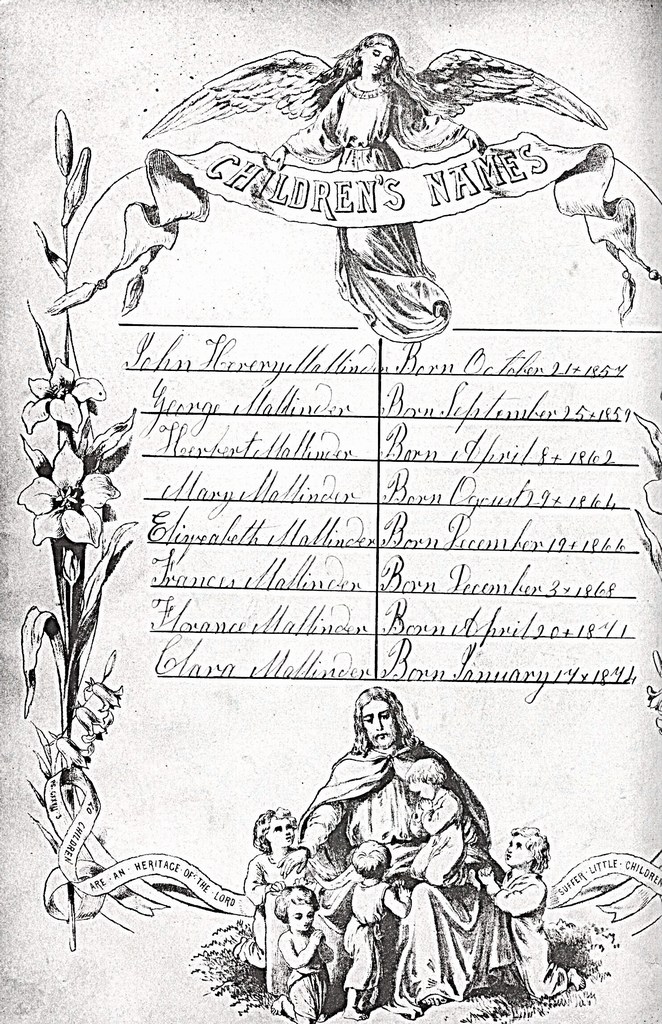 CHILDREN'S NAMES
John Henery Mallinder Born October 21 + 1857
George Mallinder Born September 25 + 1859
Herbert Mallinder Born April 8 + 1862
Mary Mallinder Born Ogust 29 + 1864
Elizabeth Mallinder Born December 19 + 1866
Frances Mallinder Born December 3 + 1868
Florance Mallinder Born April 20 + 1871
Clara Mallinder Born January 17 + 1874
LO CHILDREN
ARE · AN · HERITAGE · OF · THE · LORD
SUFFER · LITTLE · CHILDREN